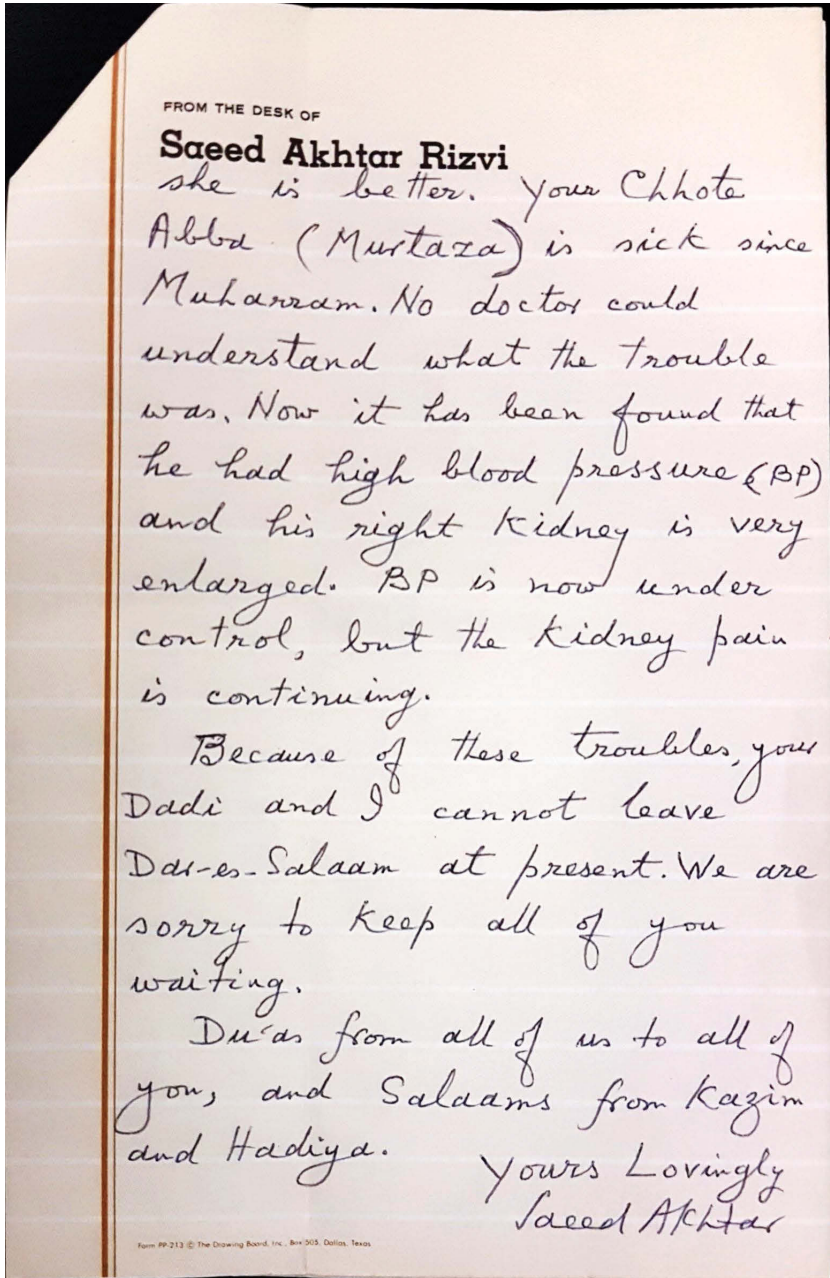 FROM THE DESK OF
Saeed Akhtar Rizvi
she is better. Your Chhote
Abba (Murtaza) is sick since
Muharram. No doctor could
understand what the trouble
was. Now it has been found that
he had high blood pressure (BP)
and his right Kidney is very
enlarged. BP is now under
control, but the Kidney pain
is continuing.
Because of these troubles, your
Dadi and I cannot leave
Dar-es-Salaam at present. We are
sorry to keep all of you
waiting.
Du'as from all of us to all of
you, and Salaams from Kazim
and Hadiya.
Yours Lovingly
Saeed Akhtar
Form PP-213 © The Drawing Board, Inc., Box 505, Dallas, Texas